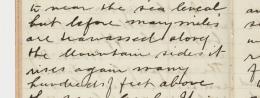 to near the sea leveal
but before many miles
are travassed along
the Mountain sides it
rises again many
hundreds of feet above